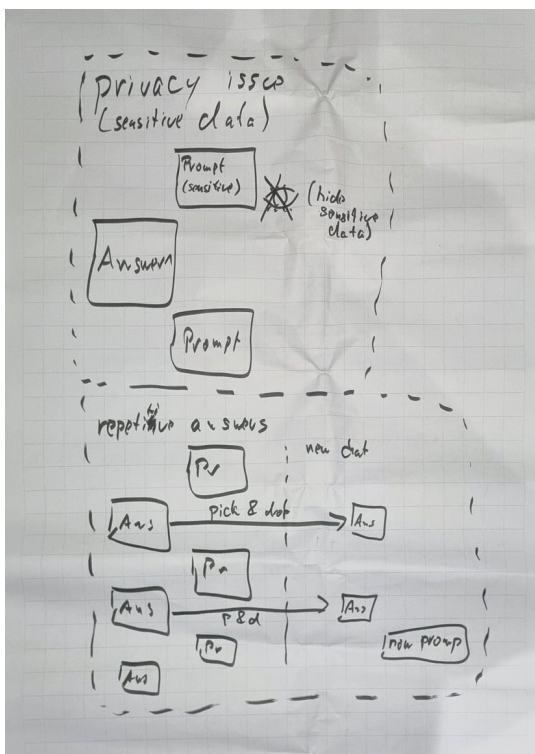 privacy issue
(sensitive data)
Prompt
(sensitive)
(hide
sensitive
data)
Answer
Prompt
repetitive answers
new chat
Pr
Ans
pick & drop
Ans
Pr
Ans
P & d
Ans
Pr
new promp
Ans